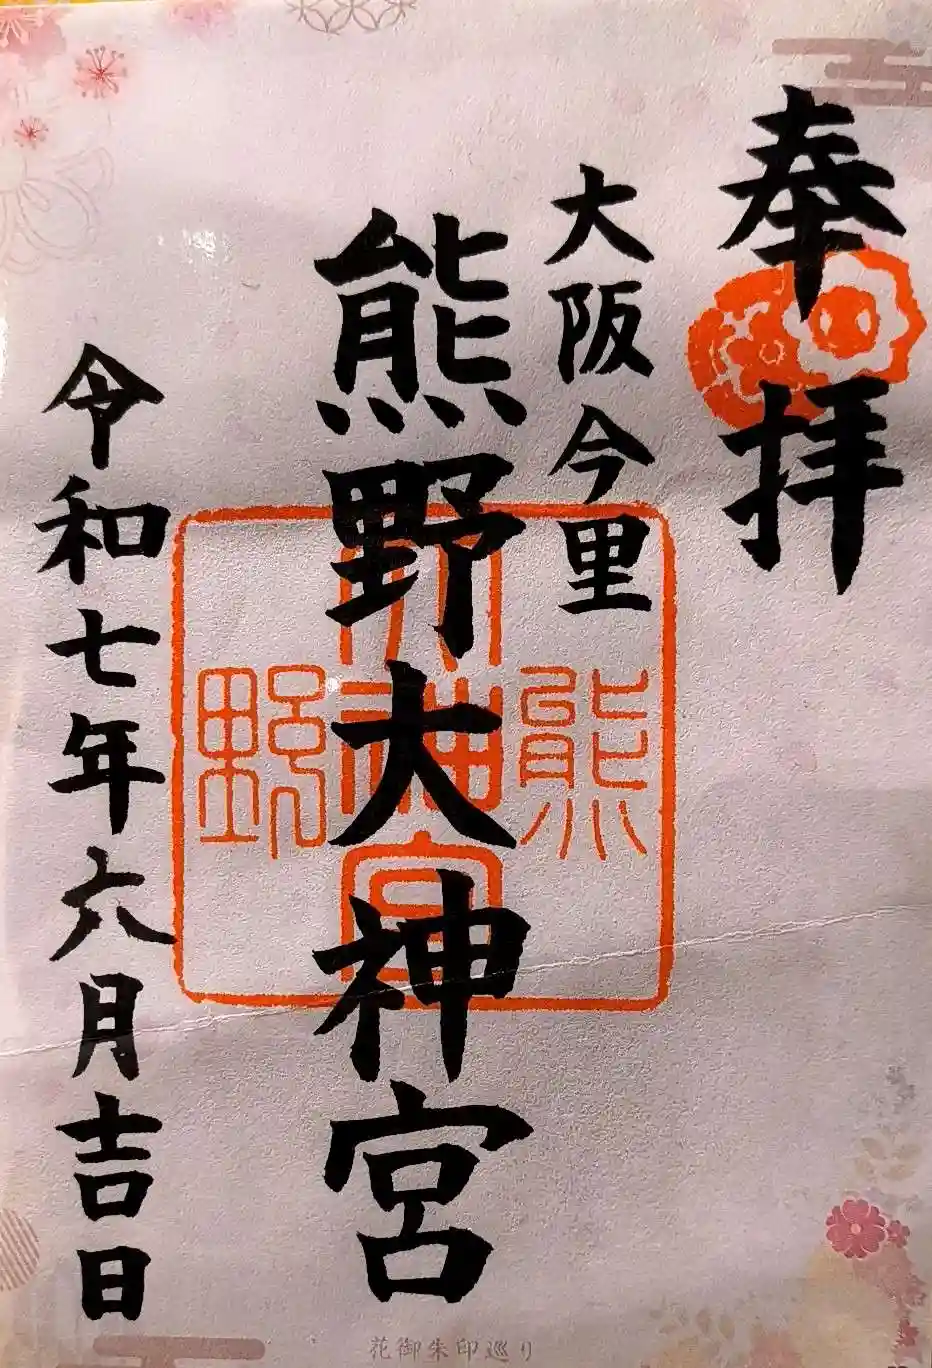 奉拝
大阪今里
熊野大神宮
熊
大神宮
野
令和七年六月吉日
花御朱印巡り